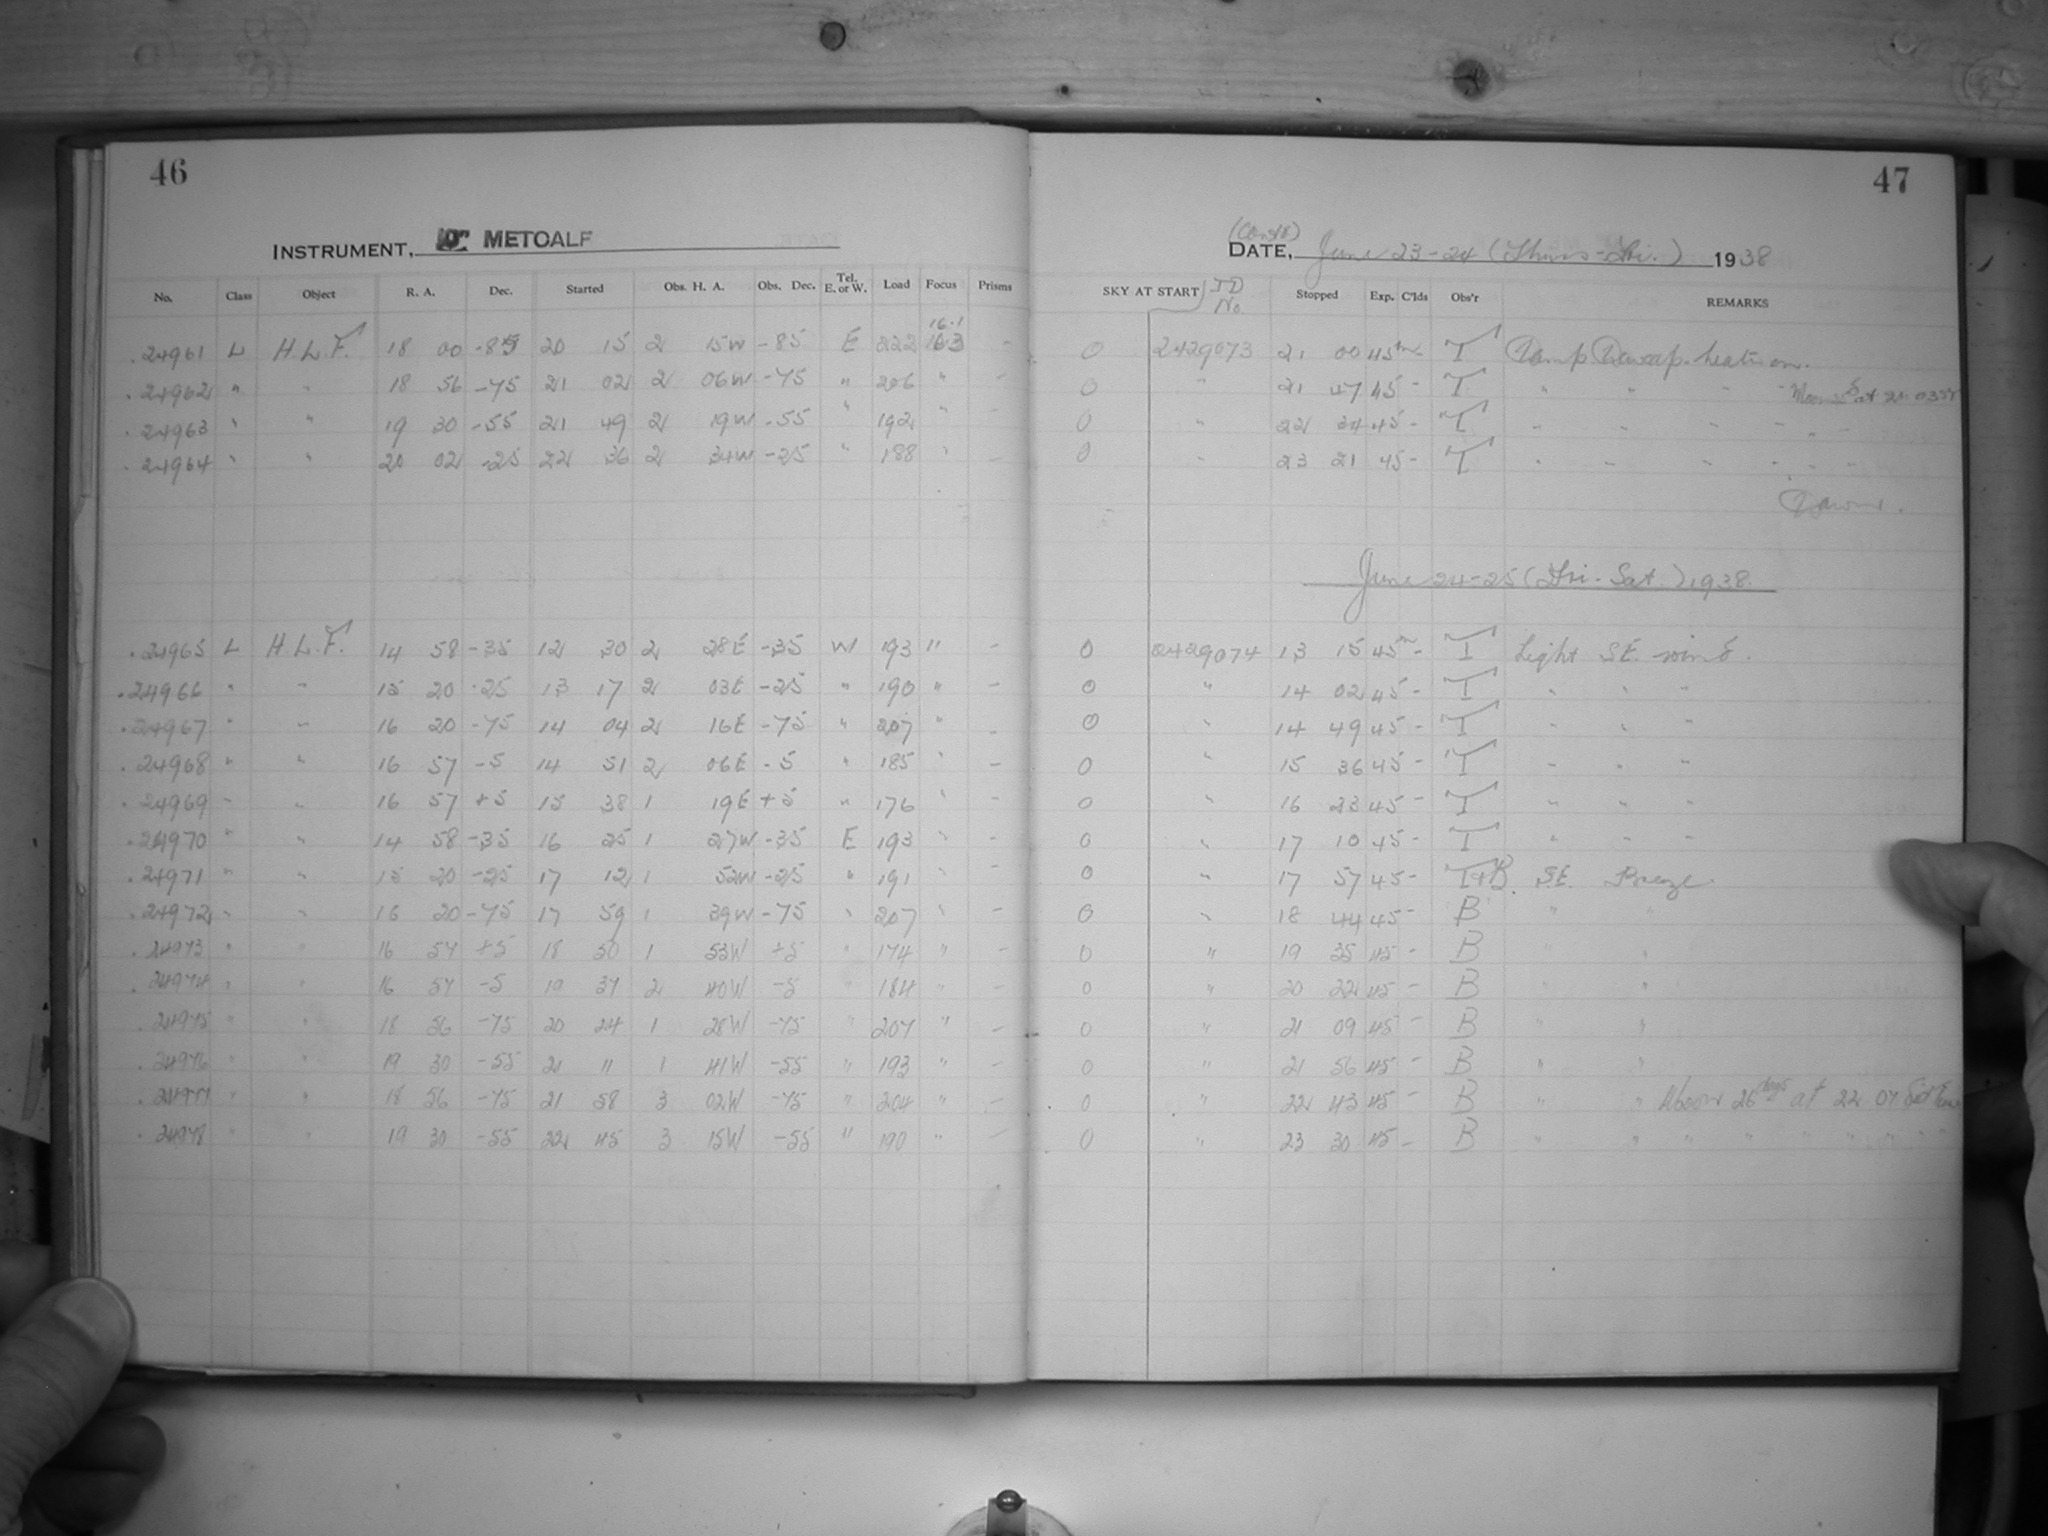 46
INSTRUMENT, 10" METCALF
No. Class Object R. A. Dec. Started Obs. H. A. Obs. Dec. Tel. E. or W. Load Focus Prisms
16.1
24961 L H.L.F. 18 00 -85 20 15 2 15W -85 E 222 16.3 -
24962 " " 18 56 -75 21 02 2 06W -75 " 206 " -
24963 " " 19 30 -55 21 49 2 19W -55 " 192 " -
24964 " " 20 02 -25 22 36 2 34W -25 " 188 " -
24965 L H.L.F. 14 58 -35 12 30 2 28E -35 W 193 " -
24966 " " 15 20 -25 13 17 2 03E -25 " 190 " -
24967 " " 16 20 -75 14 04 2 16E -75 " 207 " -
24968 " " 16 57 -5 14 51 2 06E -5 " 185 " -
24969 " " 16 57 +5 15 38 1 19E +5 " 176 " -
24970 " " 14 58 -35 16 25 1 27W -35 E 193 " -
24971 " " 15 20 -25 17 12 1 52W -25 " 191 " -
24972 " " 16 20 -75 17 59 1 39W -75 " 207 " -
24973 " " 16 57 +5 18 50 1 53W +5 " 174 " -
24974 " " 16 57 -5 19 37 2 40W -5 " 184 " -
24975 " " 18 56 -75 20 24 1 28W -75 " 207 " -
24976 " " 19 30 -55 21 11 1 41W -55 " 193 " -
24977 " " 18 56 -75 21 58 3 02W -75 " 204 " -
24978 " " 19 30 -55 22 45 3 15W -55 " 190 " -
47
(Contd)
DATE, June 23-24 (Thurs-Fri.) 1938
SKY AT START JD No. Stopped Exp. C'lds Obs'r REMARKS
0 2429073 21 00 45m - T Damp Dewcap heater on.
0 " 21 47 45 - T " " " Moon at 21 03
0 " 22 34 45 - T " " " " " "
0 " 23 21 45 - T " " " " " "
Dawn.
June 24-25 (Fri-Sat.) 1938.
0 2429074 13 15 45m - T Light SE. wind.
0 " 14 02 45 - T " " "
0 " 14 49 45 - T " " "
0 " 15 36 45 - T " " "
0 " 16 23 45 - T " " "
0 " 17 10 45 - T " " "
0 " 17 57 45 - T+B. SE. Breeze
0 " 18 44 45 - B " "
0 " 19 35 45 - B " "
0 " 20 22 45 - B " "
0 " 21 09 45 - B " "
0 " 21 56 45 - B " "
0 " 22 43 45 - B " " Moon 26 days at 22 07 Sid
0 " 23 30 45 - B " " " " " " " "